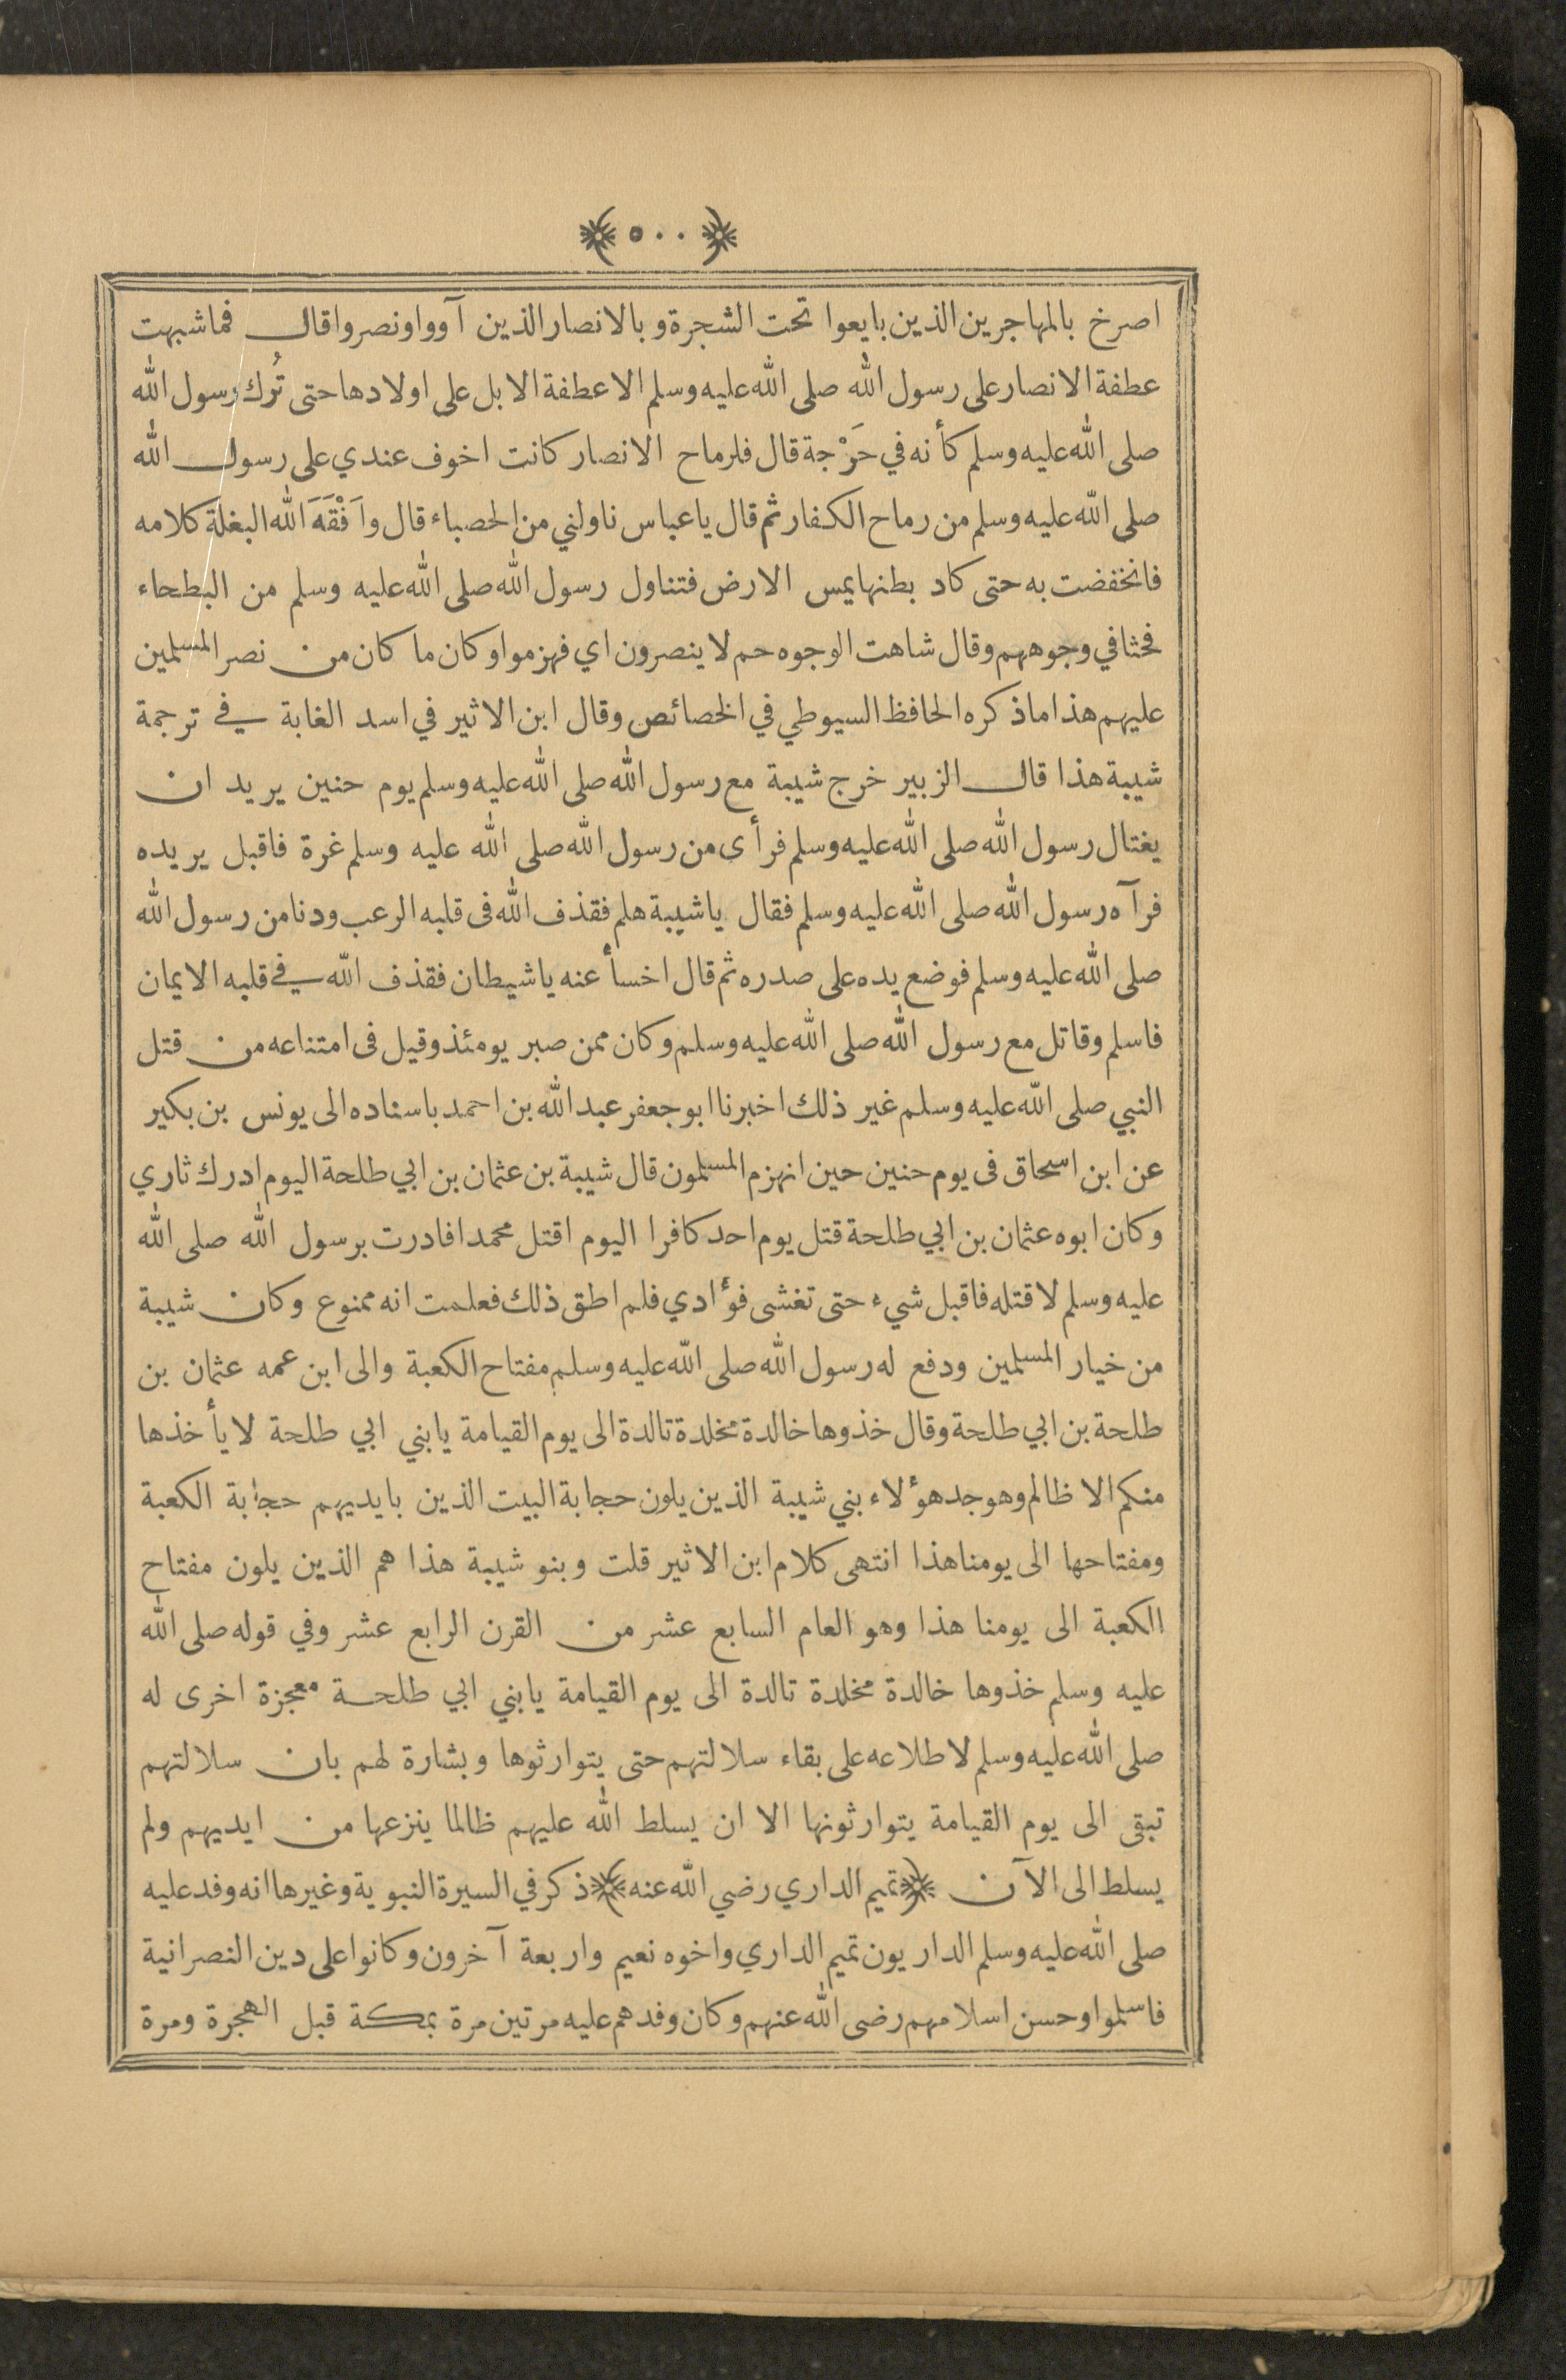 ﴿ ٥٠٠ ﴾
اصرخ بالمهاجرين الذين بايعوا تحت الشجرة و بالانصار الذين آووا ونصروا قال فما شبهت
عطفة الانصار على رسول الله صلى الله عليه وسلم الا عطفة الابل على اولادها حتى تُرك رسول الله
صلى الله عليه وسلم كأنه في حَرْجة قال فلرماح الانصار كانت اخوف عندي على رسول الله
صلى الله عليه وسلم من رماح الكفار ثم قال يا عباس ناولني من الحصباء قال وأَفْقَهَ الله البغلة كلامه
فانخفضت به حتى كاد بطنها يمس الارض فتناول رسول الله صلى الله عليه وسلم من البطحاء
فحثا في وجوههم وقال شاهت الوجوه حم لا ينصرون اي فهزموا وكان ما كان من نصر المسلمين
عليهم هذا ما ذكره الحافظ السيوطي في الخصائص وقال ابن الاثير في اسد الغابة في ترجمة
شيبة هذا قال الزبير خرج شيبة مع رسول الله صلى الله عليه وسلم يوم حنين يريد ان
يغتال رسول الله صلى الله عليه وسلم فرأى من رسول الله صلى الله عليه وسلم غرة فاقبل يريده
فرآه رسول الله صلى الله عليه وسلم فقال يا شيبة هلم فقذف الله فى قلبه الرعب ودنا من رسول الله
صلى الله عليه وسلم فوضع يده على صدره ثم قال اخسأ عنه يا شيطان فقذف الله في قلبه الايمان
فاسلم وقاتل مع رسول الله صلى الله عليه وسلم وكان ممن صبر يومئذ وقيل فى امتناعه من قتل
النبي صلى الله عليه وسلم غير ذلك اخبرنا ابو جعفر عبد الله بن احمد باسناده الى يونس بن بكير
عن ابن اسحاق فى يوم حنين حين انهزم المسلمون قال شيبة بن عثمان بن ابي طلحة اليوم ادرك ثاري
وكان ابوه عثمان بن ابي طلحة قتل يوم احد كافرا اليوم اقتل محمدا فادرت برسول الله صلى الله
عليه وسلم لاقتله فاقبل شيء حتى تغشى فؤادي فلم اطق ذلك فعلمت انه ممنوع وكان شيبة
من خيار المسلمين ودفع له رسول الله صلى الله عليه وسلم مفتاح الكعبة والى ابن عمه عثمان بن
طلحة بن ابي طلحة وقال خذوها خالدة مخلدة تالدة الى يوم القيامة يا بني ابي طلحة لا يأخذها
منكم الا ظالم وهو جد هؤلاء بني شيبة الذين يلون حجابة البيت الذين بايديهم حجابة الكعبة
ومفتاحها الى يومنا هذا انتهى كلام ابن الاثير قلت وبنو شيبة هذا هم الذين يلون مفتاح
الكعبة الى يومنا هذا وهو العام السابع عشر من القرن الرابع عشر وفي قوله صلى الله
عليه وسلم خذوها خالدة مخلدة تالدة الى يوم القيامة يا بني ابي طلحة معجزة اخرى له
صلى الله عليه وسلم لاطلاعه على بقاء سلالتهم حتى يتوارثوها وبشارة لهم بان سلالتهم
تبقى الى يوم القيامة يتوارثونها الا ان يسلط الله عليهم ظالما ينزعها من ايديهم ولم
يسلط الى الآن ﴿ تميم الداري رضي الله عنه ﴾ ذكر في السيرة النبوية وغيرها انه وفد عليه
صلى الله عليه وسلم الداريون تميم الداري واخوه نعيم واربعة آخرون وكانوا على دين النصرانية
فاسلموا وحسن اسلامهم رضى الله عنهم وكان وفدهم عليه مرتين مرة بمكة قبل الهجرة ومرة